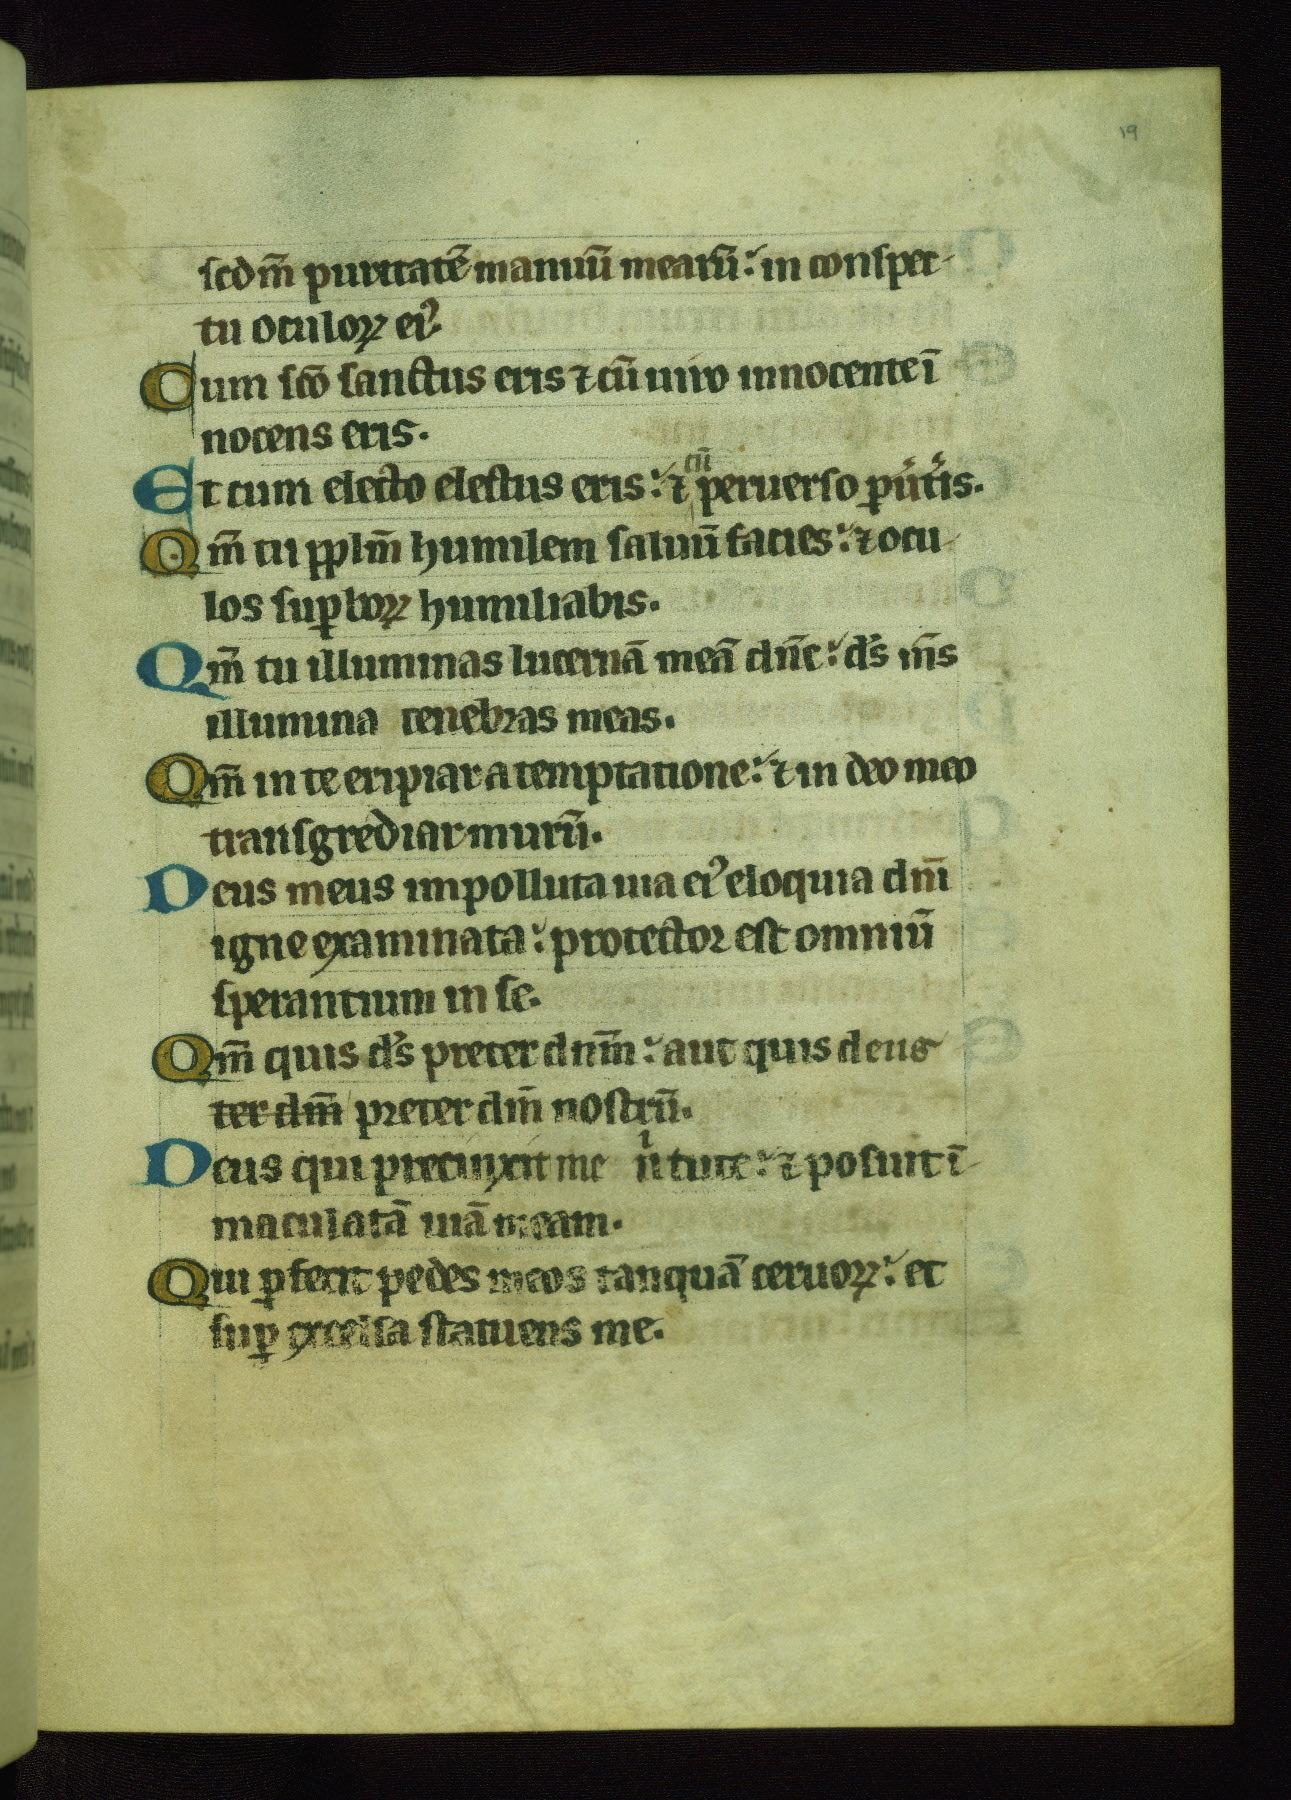 19
scdm̄ puritatē manuū mearū: in conspec-
tu oculoꝝ ei᷒.
Cum sc̄o sanctus eris ⁊ cū uiro innocente ī
nocens eris.
Et cum electo electus eris: ⁊ cū peruerso ꝑu̾t̾is.
Qm̄ tu pplm̄ humilem saluū facies: ⁊ ocu-
los suꝑboꝝ humiliabis.
Qm̄ tu illuminas lucernā meā dn̄e: ds̄ ms̄
illumina tenebras meas.
Qm̄ in te eripiar a temptatione: ⁊ in deo meo
transgrediar murū.
Deus meus impolluta uia ei᷒ eloquia dn̄i
igne examinata: protector est omniū
sperantium in se.
Qm̄ quis ds̄ preter dnm̄: aut quis deus
ter dm̄ preter dm̄ nostrū.
Deus qui precinxit me uͥtute: ⁊ posuit ī-
maculatā uiā meam.
Qui ꝑfecit pedes meos tanquā ceruoꝝ: et
suꝑ excelsa statuens me.